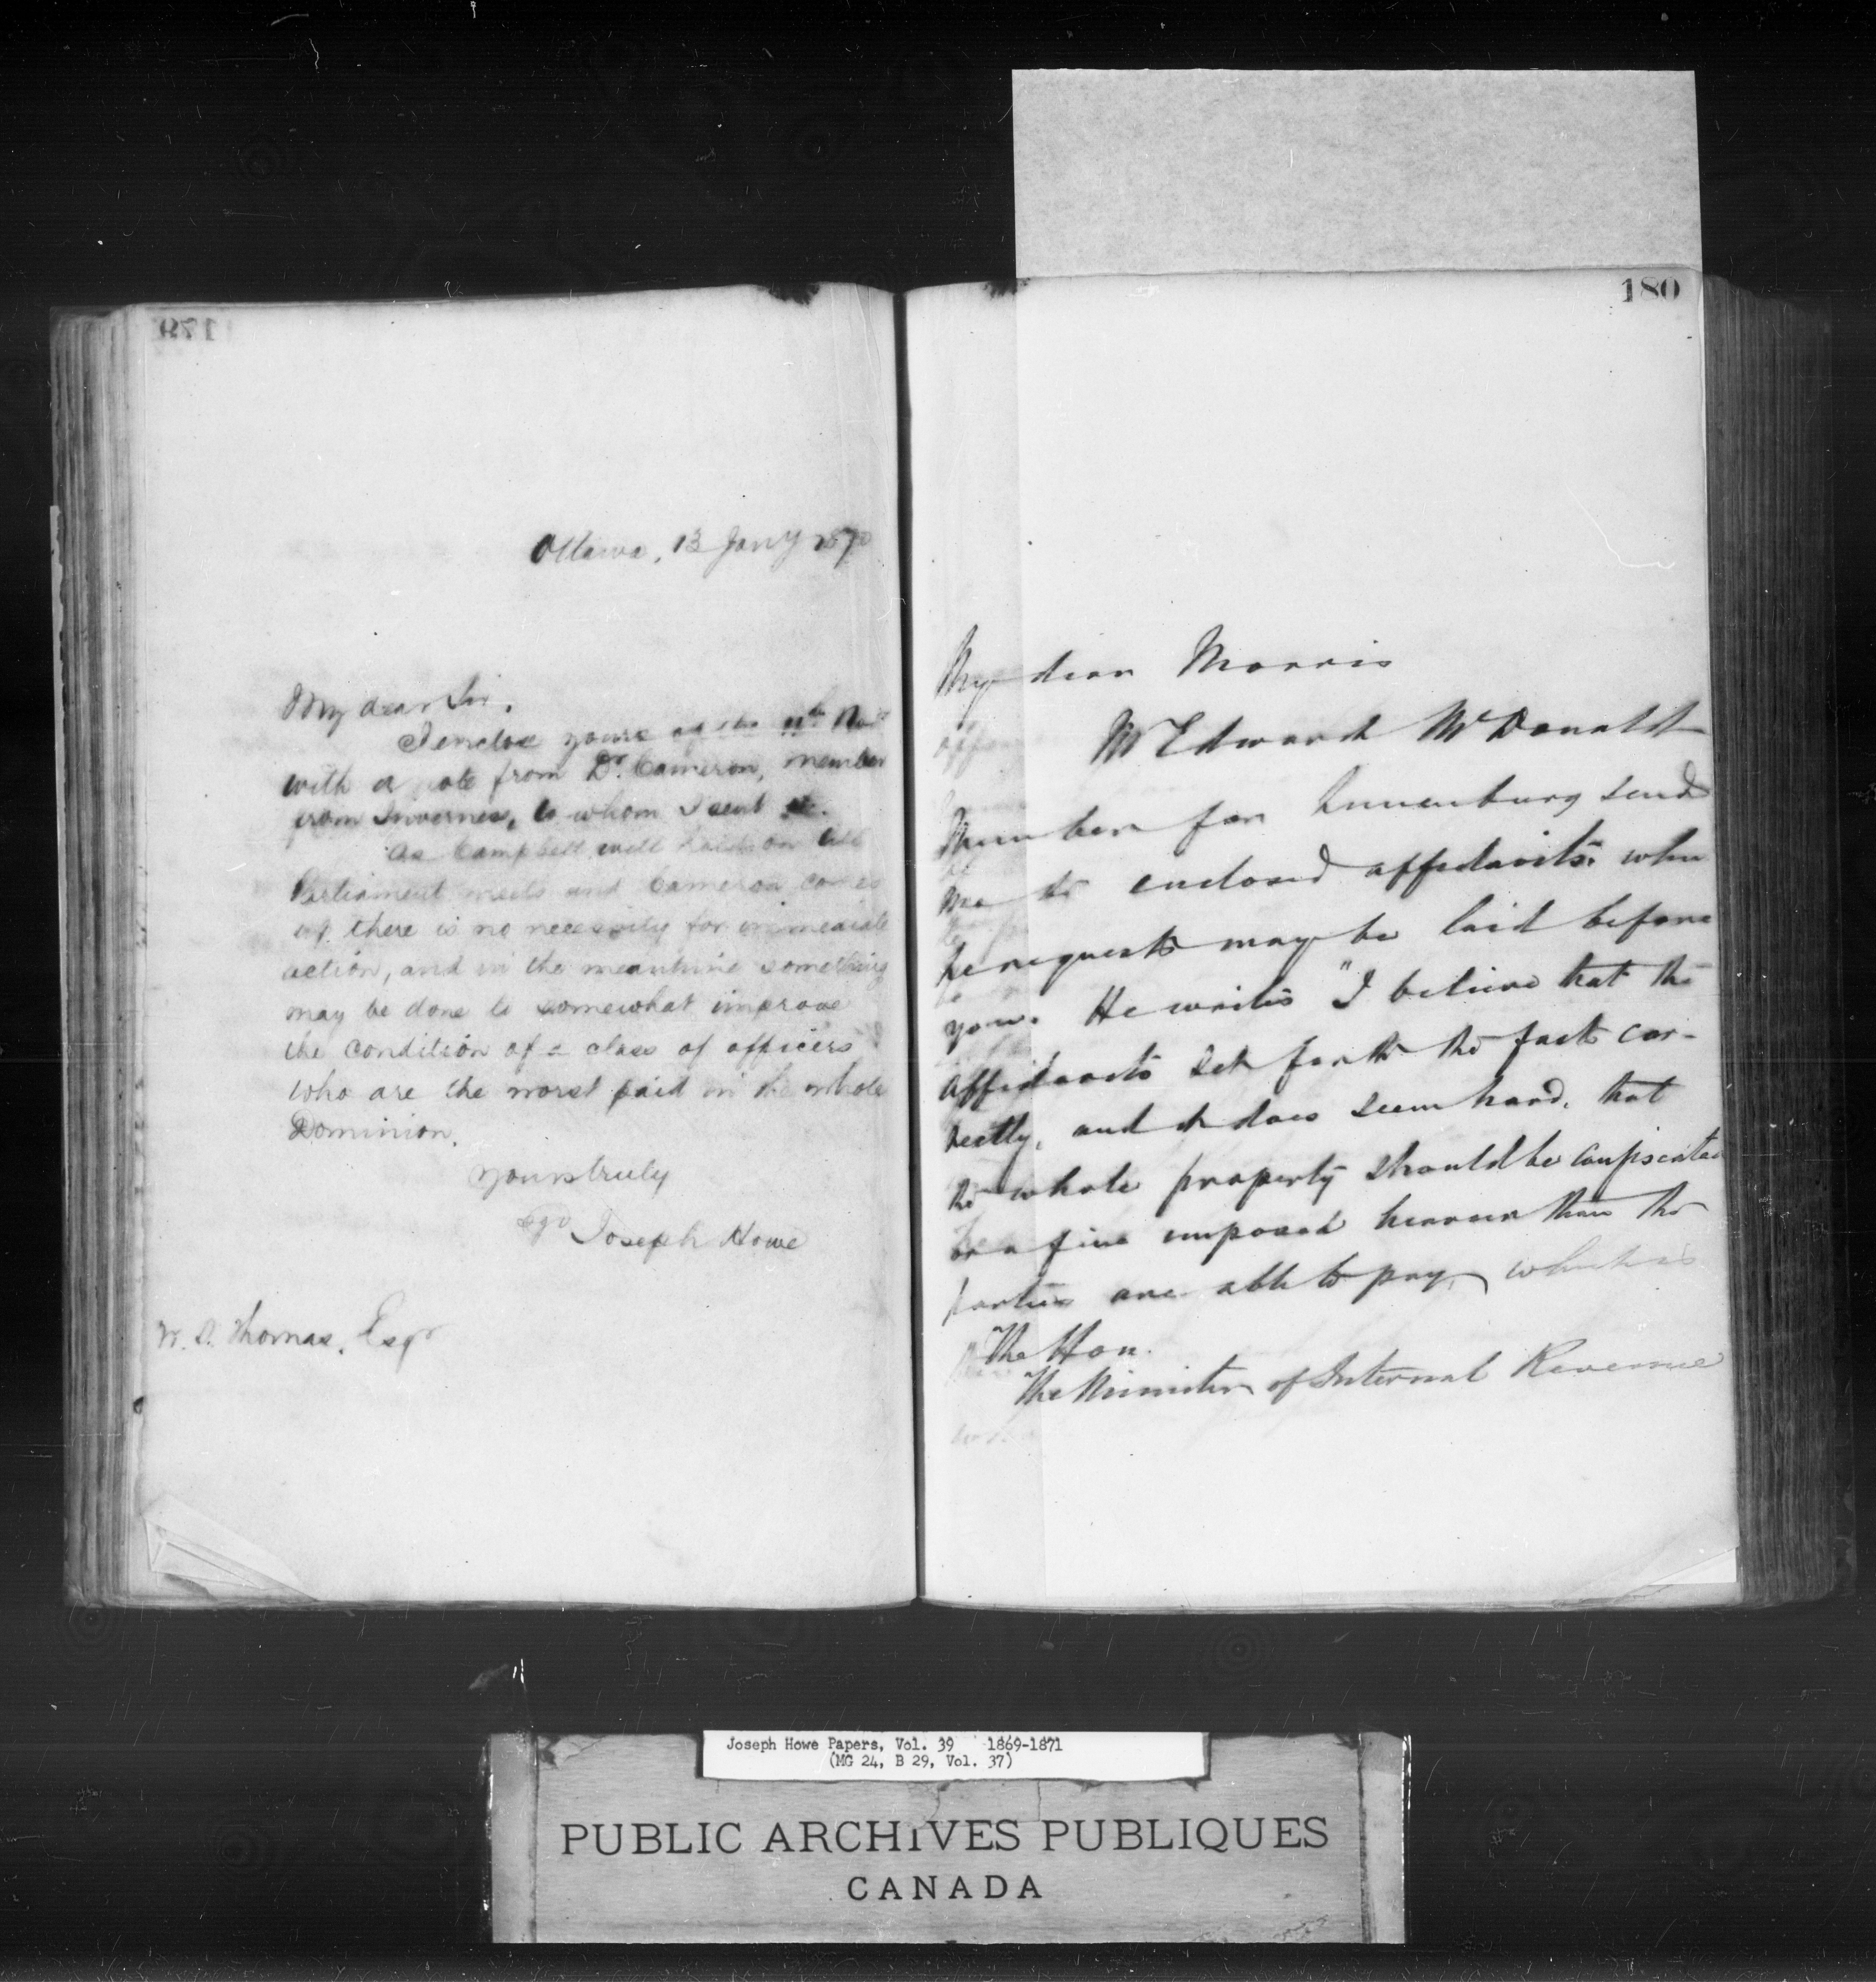 Ottawa, 13 Jany 1870
My dear Sir,
I enclose yours of the 11th Nov
with a note from Dr. Cameron, member
from Invernes, to whom I sent it.
As Campbell will hold on till
Parliament meets and Cameron comes
up there is no necessity for immediate
action, and in the meantime something
may be done to somewhat improve
the condition of a class of officers
who are the worst paid in the whole
Dominion.
Yours truly
sgd Joseph Howe
Thomas, Esqr
180
My dear Morris
Mr Edward McDonald
Member for Lunenburg sends
me the enclosed affidavits. when
he requests may be laid before
you. He writes "I believe that the
affidavits set forth the facts cor-
rectly, and it does seem hard, that
the whole property should be confiscated
or a fine imposed heavier than the
parties are able to pay, which is
The Hon.
The Minister of Internal Revenue
Joseph Howe Papers, Vol. 39 1869-1871
(MG 24, B 29, Vol. 37)
PUBLIC ARCHIVES PUBLIQUES
CANADA